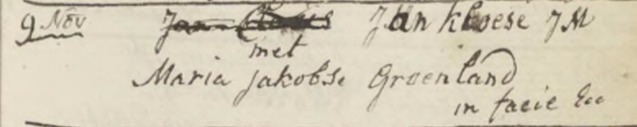 9 Nov Jan Claas Jan kloese JM
met
Maria Jakobse Groenland
in facie Ecc